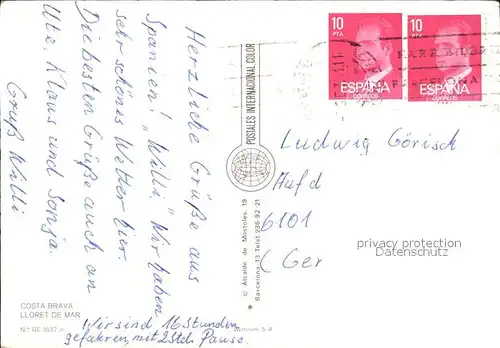 Herzliche Grüße aus
Spanien! "Willi." Wir haben
sehr schönes Wetter hier.
Die besten Grüße auch an
Ute, Klaus und Sonja.
Gruß Willi
Wir sind 16 Stunden
gefahren, mit 2 Std. Pause.
COSTA BRAVA
LLORET DE MAR
POSTALES INTERNACIONAL COLOR
c/ Alcalde de Mostoles, 19
Barcelona-13 Telef. 236-92-21
10
PTA
ESPAÑA
CORREOS
10
ESPAÑA
CORREOS
Ludwig Görisch
6101
privacy protection
Datenschutz
(Ger